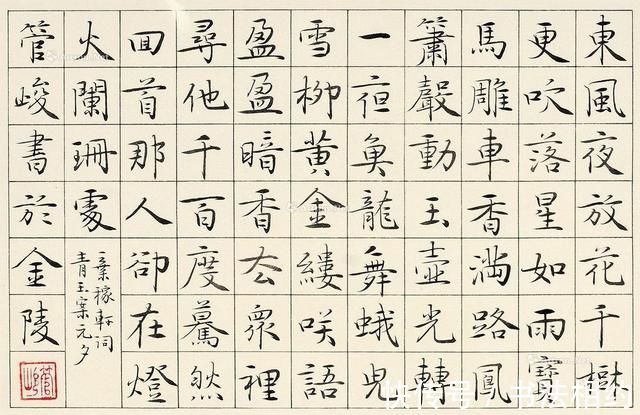 東風夜放花千樹
更吹落星如雨寶
馬雕車香滿路鳳
簫聲動玉壺光轉
一夜魚龍舞蛾兒
雪柳黃金縷咲語
盈盈暗香去衆裡
尋他千百度驀然
回首那人卻在燈
火闌珊處
辛稼軒詞
青玉案元夕
管峻書於金陵
快传号/书法相约